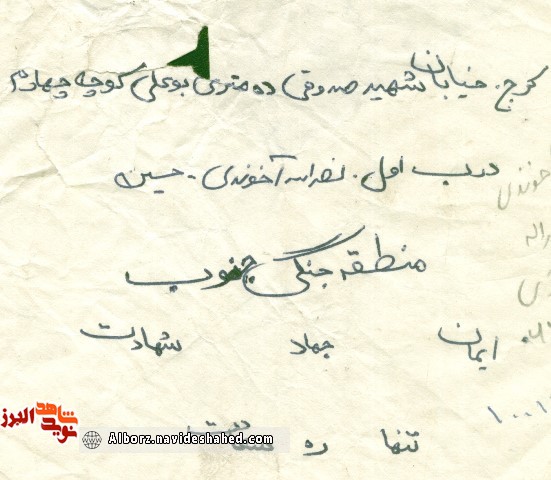 کرج. خیابان شهید صدوقی ده متری بوعلی کوچه چهارم
درب اول. نصراله آخوندی. حسین
منطقه جنگی جنوب
ایمان جهاد شهادت
تنها ره سعادت
شاهد
نوید
البرز
Alborz.navideshahed.com